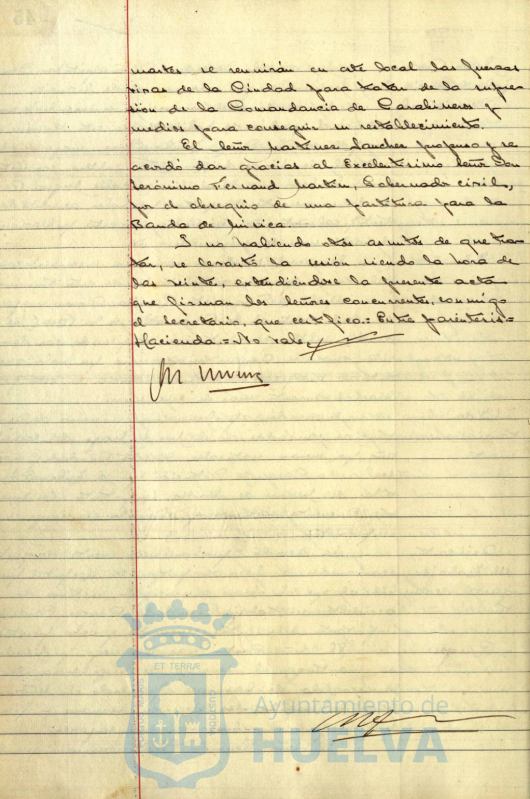 martes se reunirán en este local las fuerzas
vivas de la Ciudad para tratar de la supre-
sión de la Comandancia de Carabineros y
medios para conseguir su restablecimiento.
El Señor Martinez Sanchez propuso y se
acordó dar gracias al Excelentisimo Señor Don
Jerónimo Fernaud Martin, Gobernador civil,
por el obsequio de una partitura para la
Banda de música.
Y no habiendo otros asuntos de que tra-
tar, se levantó la sesión siendo la hora de
las veinte, extendiéndose la presente acta
que firman los Señores concurrentes, conmigo
el Secretario, que certifico.= Entre parentesis=
Hacienda.= No vale.
ET TERRÆ
Ayuntamiento de
HUELVA